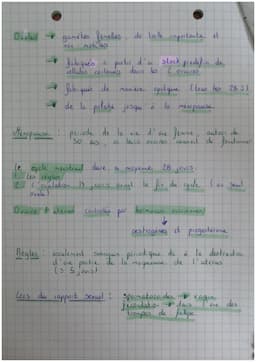 Ovules → gamètes femelles, de taille importante et non mobiles
→ fabriqués à partir d'un stock prédéfini de cellules contenues dans les 2 ovaires
→ fabriqués de manière cyclique (tous les 28 j)
→ de la puberté jusqu'à la ménopause
Ménopause : période de la vie d'une femme, autour de 50 ans, où les ovaires cessent de fonctionner
Le cycle menstruel dure en moyenne 28 jours
1. Les règles
2. L'ovulation 14 jours avant la fin du cycle (un seul ovule)
Ovaires + utérus contrôlés par hormones ovariennes
→ oestrogènes et progestérone
Règles : écoulement sanguin périodique dû à la destruction d'une partie de la muqueuse de l'utérus (≥ 5 jours)
Lors du rapport sexuel : spermatozoïdes → vagin
fécondation → dans une des trompes de Fallope